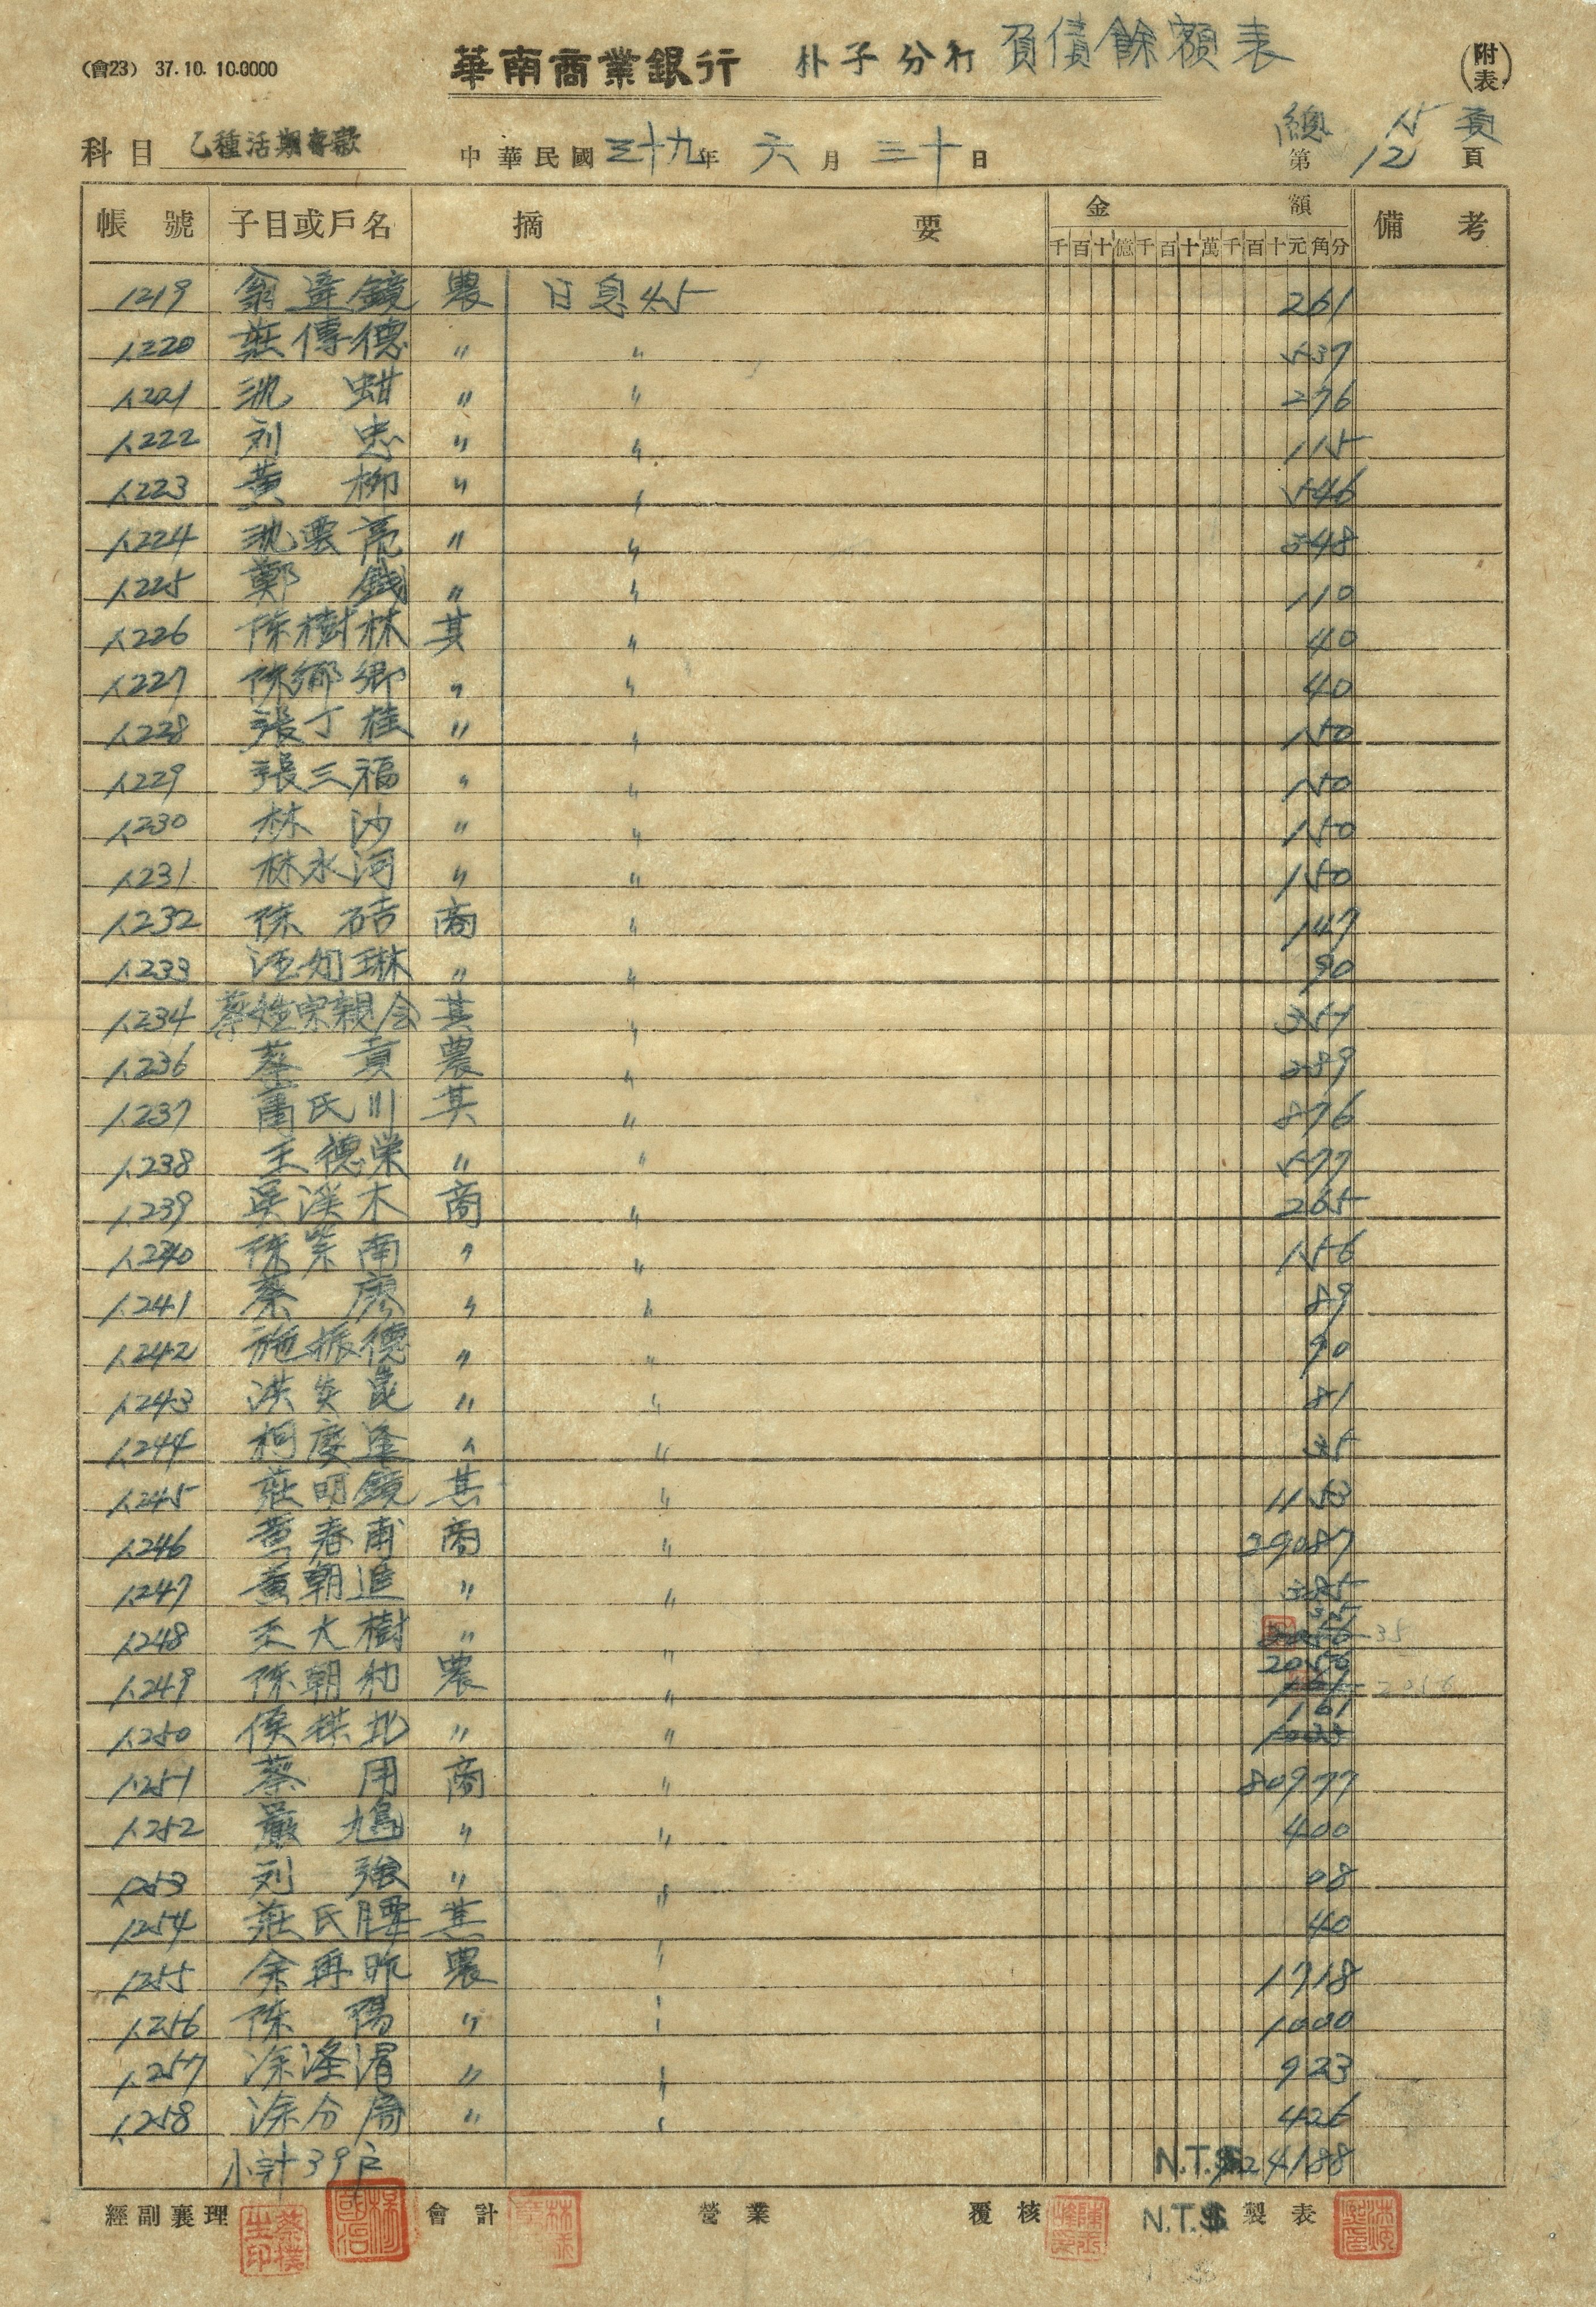 (會23) 37.10.10.0000
華南商業銀行 朴子分行 負債餘額表 (附表)
總 15 頁
科目 乙種活期存款 中華民國三十九年六月三十日 第 12 頁
帳號 子目或戶名 摘要 金額 備考
千百十億千百十萬千百十元角分
1219 翁逢鏡 農 日息45 261
1220 莊傳德 〃 〃 537
1221 沈蚶 〃 〃 276
1222 刘忠 〃 〃 115
1223 黃柳 〃 〃 546
1224 沈農亮 〃 〃 348
1225 鄭錢 〃 〃 110
1226 陈樹林 其 〃 40
1227 陈鄉 〃 〃 40
1228 張丁桂 〃 〃 150
1229 張三福 〃 〃 150
1230 林沙 〃 〃 150
1231 林水河 〃 〃 150
1232 陈硈 商 〃 147
1233 汪知琳 〃 〃 90
1234 蔡姓宗親会 其 〃 351
1236 蔡貢 農 〃 389
1237 蕭氏川 其 〃 876
1238 王德榮 〃 〃 577
1239 吳溪木 商 〃 265
1240 陈崇南 〃 〃 156
1241 蔡廖 〃 〃 89
1242 施振德 〃 〃 90
1243 洪炎崑 〃 〃 81
1244 柯慶逢 〃 〃 35
1245 莊明鏡 其 〃 1153
1246 黃春甫 商 〃 29087
1247 黃朝進 〃 〃 385
1248 王大樹 〃 〃 35 35
1249 陈朝和 農 〃 2056 2056
1250 侯棋北 〃 〃 161
1251 蔡用 商 〃 80977
1252 嚴鳩 〃 〃 400
1253 刘強 〃 〃 08
1254 莊氏腰 其 〃 40
1255 余再昨 農 〃 1718
1256 陈陽 〃 〃 1000
1257 涂 〃 〃 923
1258 涂分 〃 〃 426
小計39戶 N.T.$ 124188
經副襄理 會計 營業 覆核 N.T.$ 製表